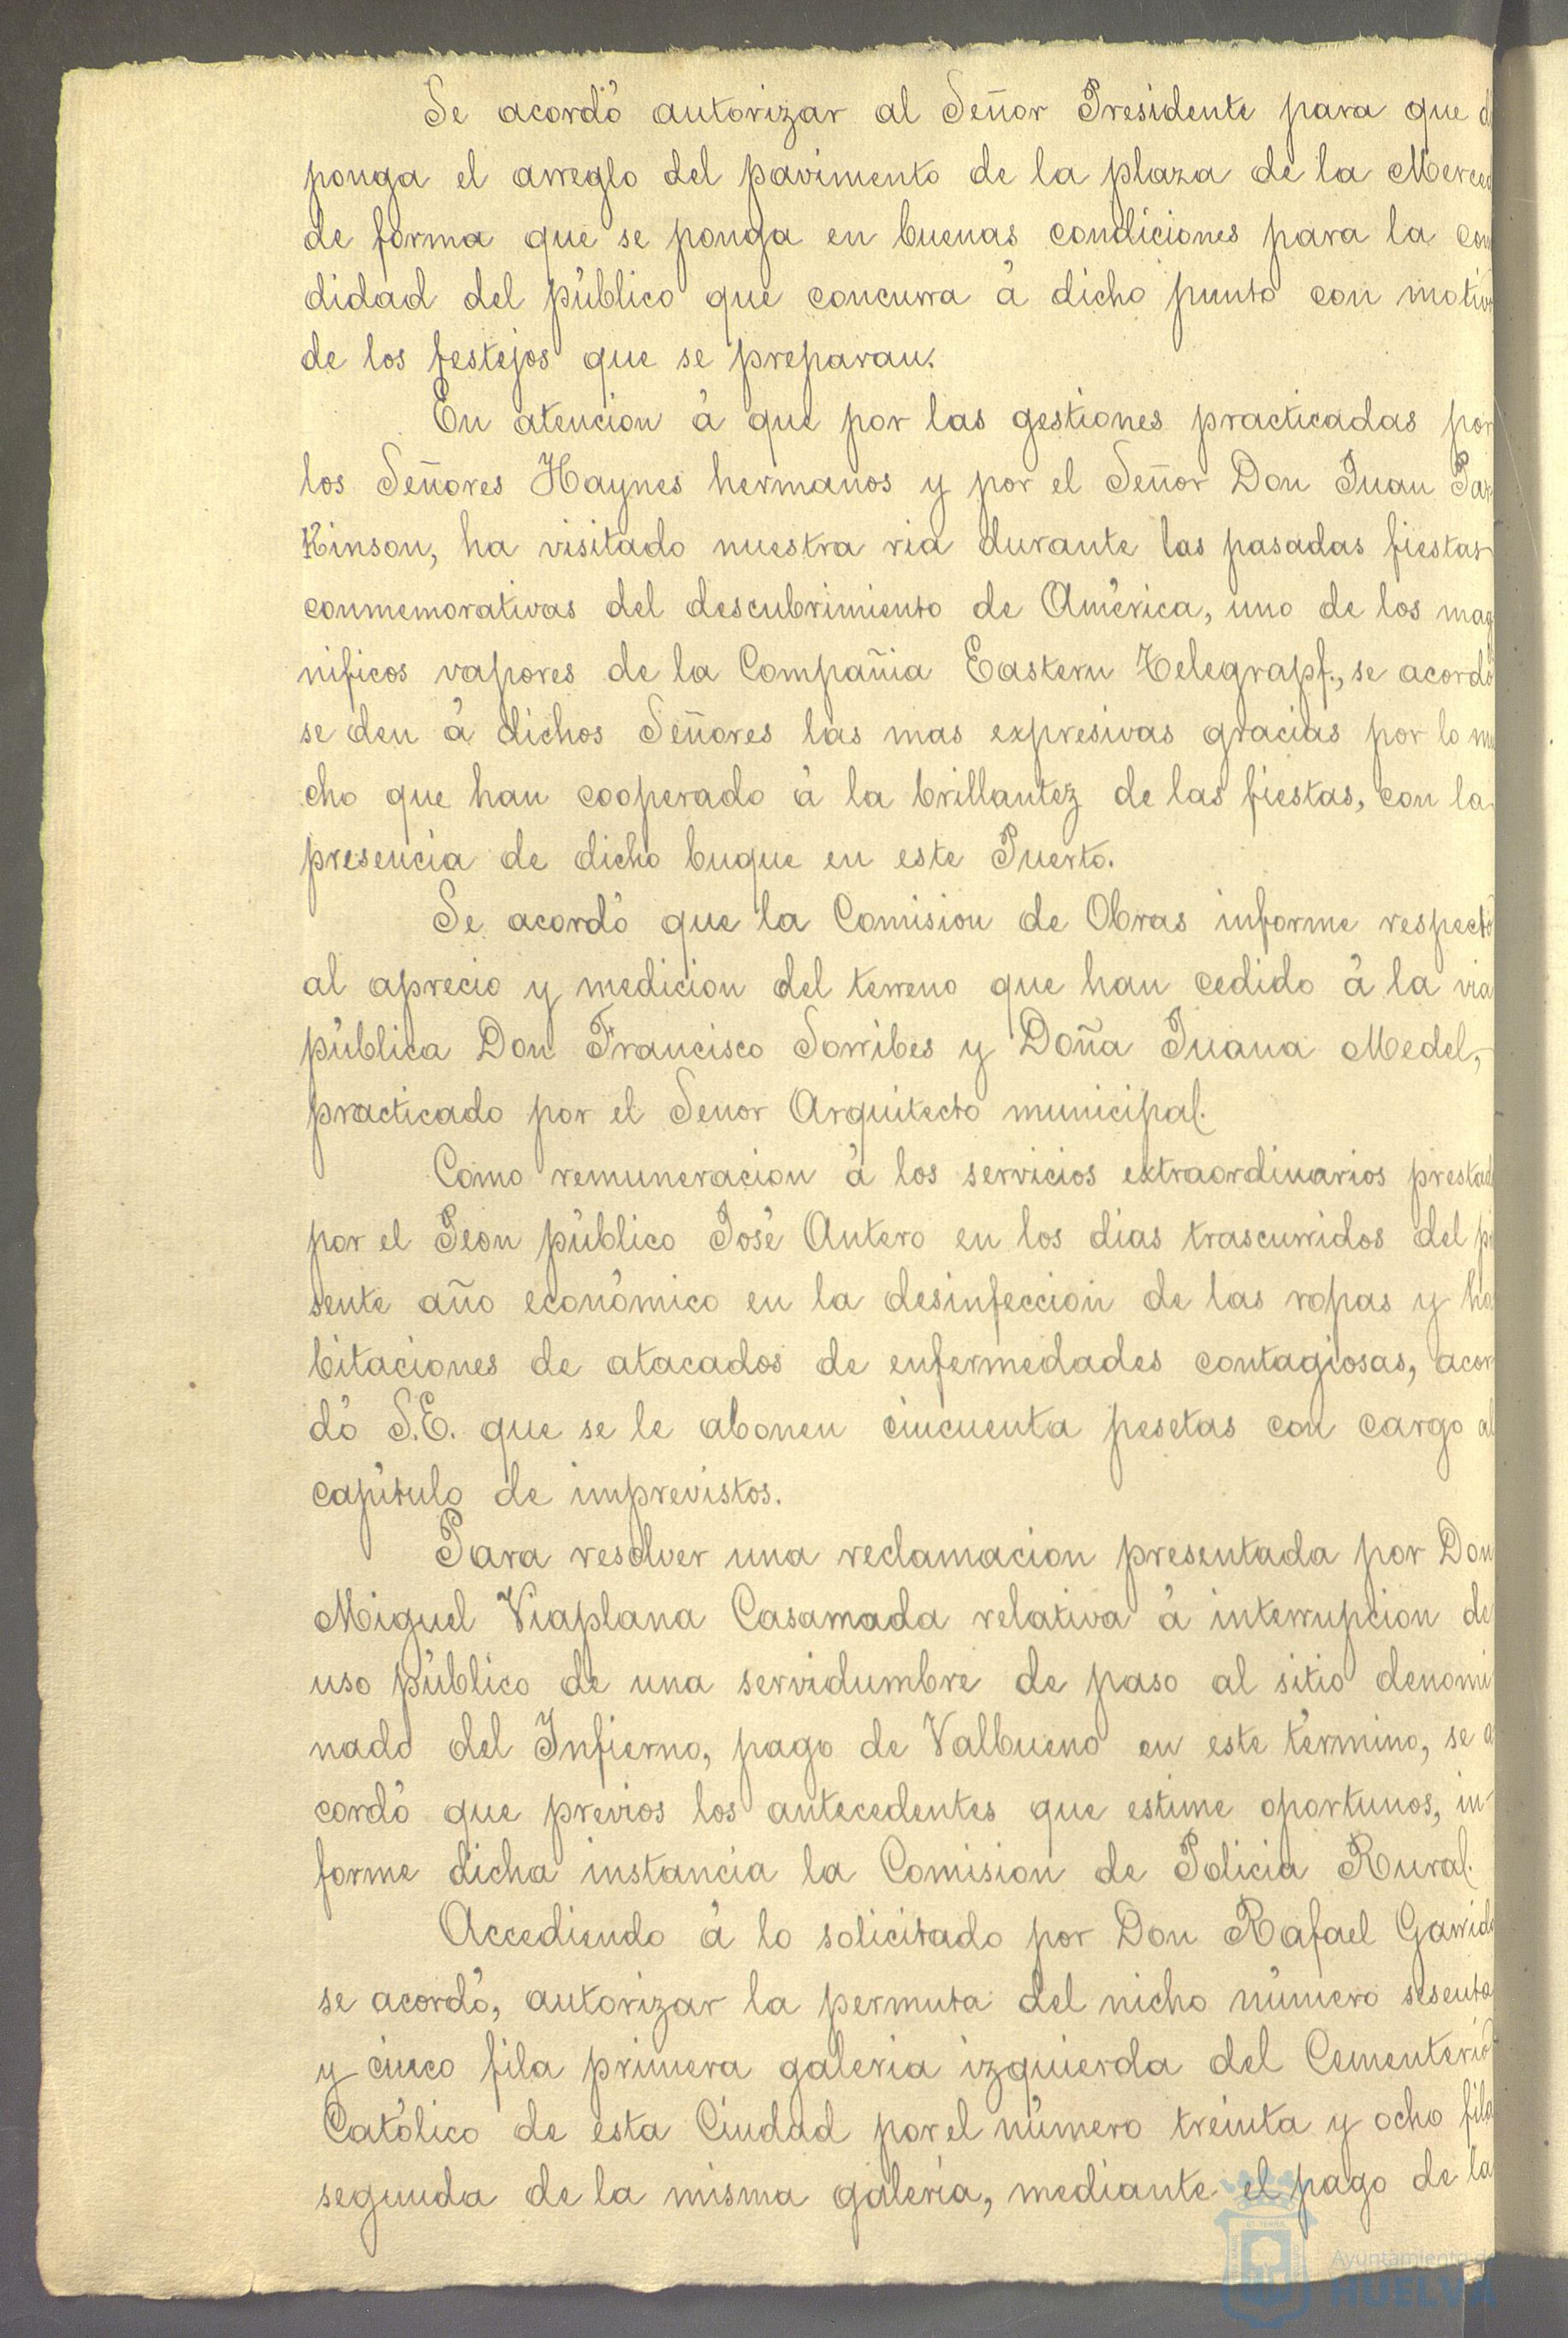 Se acordó autorizar al Señor Presidente para que
ponga el arreglo del pavimento de la plaza de la Merced
de forma que se ponga en buenas condiciones para la com
didad del público que concurra á dicho punto con motivo
de los festejos que se preparan.
En atencion á que por las gestiones practicadas por
los Señores Haynes hermanos y por el Señor Don Juan Par
Kinson, ha visitado nuestra ria durante las pasadas fiestas
conmemorativas del descubrimiento de América, uno de los mag
nificos vapores de la Compañia Eastern Telegrapf., se acordó
se den á dichos Señores las mas expresivas gracias por lo mu
cho que han cooperado á la brillantez de las fiestas, con la
presencia de dicho buque en este Puerto.
Se acordó que la Comision de Obras informe respecto
al aprecio y medicion del terreno que han cedido á la via
pública Don Francisco Sorribes y Doña Juana Medel,
practicado por el Senor Arquitecto municipal.
Como remuneracion á los servicios extraordinarios prestad
por el Peon público José Antero en los dias trascurridos del p
sente año económico en la desinfeccion de las ropas y ha
bitaciones de atacados de enfermedades contagiosas, acor
dó S.E. que se le abonen cincuenta pesetas con cargo al
capítulo de imprevistos.
Para resolver una reclamacion presentada por Don
Miguel Viaplana Casamada relativa á interrupcion de
uso público de una servidumbre de paso al sitio denomi
nado del Infierno, pago de Valbueno en este término, se a
cordó que previos los antecedentes que estime oportunos, in-
forme dicha instancia la Comision de Policia Rural.
Accediendo á lo solicitado por Don Rafael Garrido
se acordó, autorizar la permuta del nicho número sesenta
y cinco fila primera galeria izquierda del Cementerio
Católico de esta Ciudad por el número treinta y ocho fila
segunda de la misma galería, mediante el pago de la
Ayuntamiento de
HUELVA